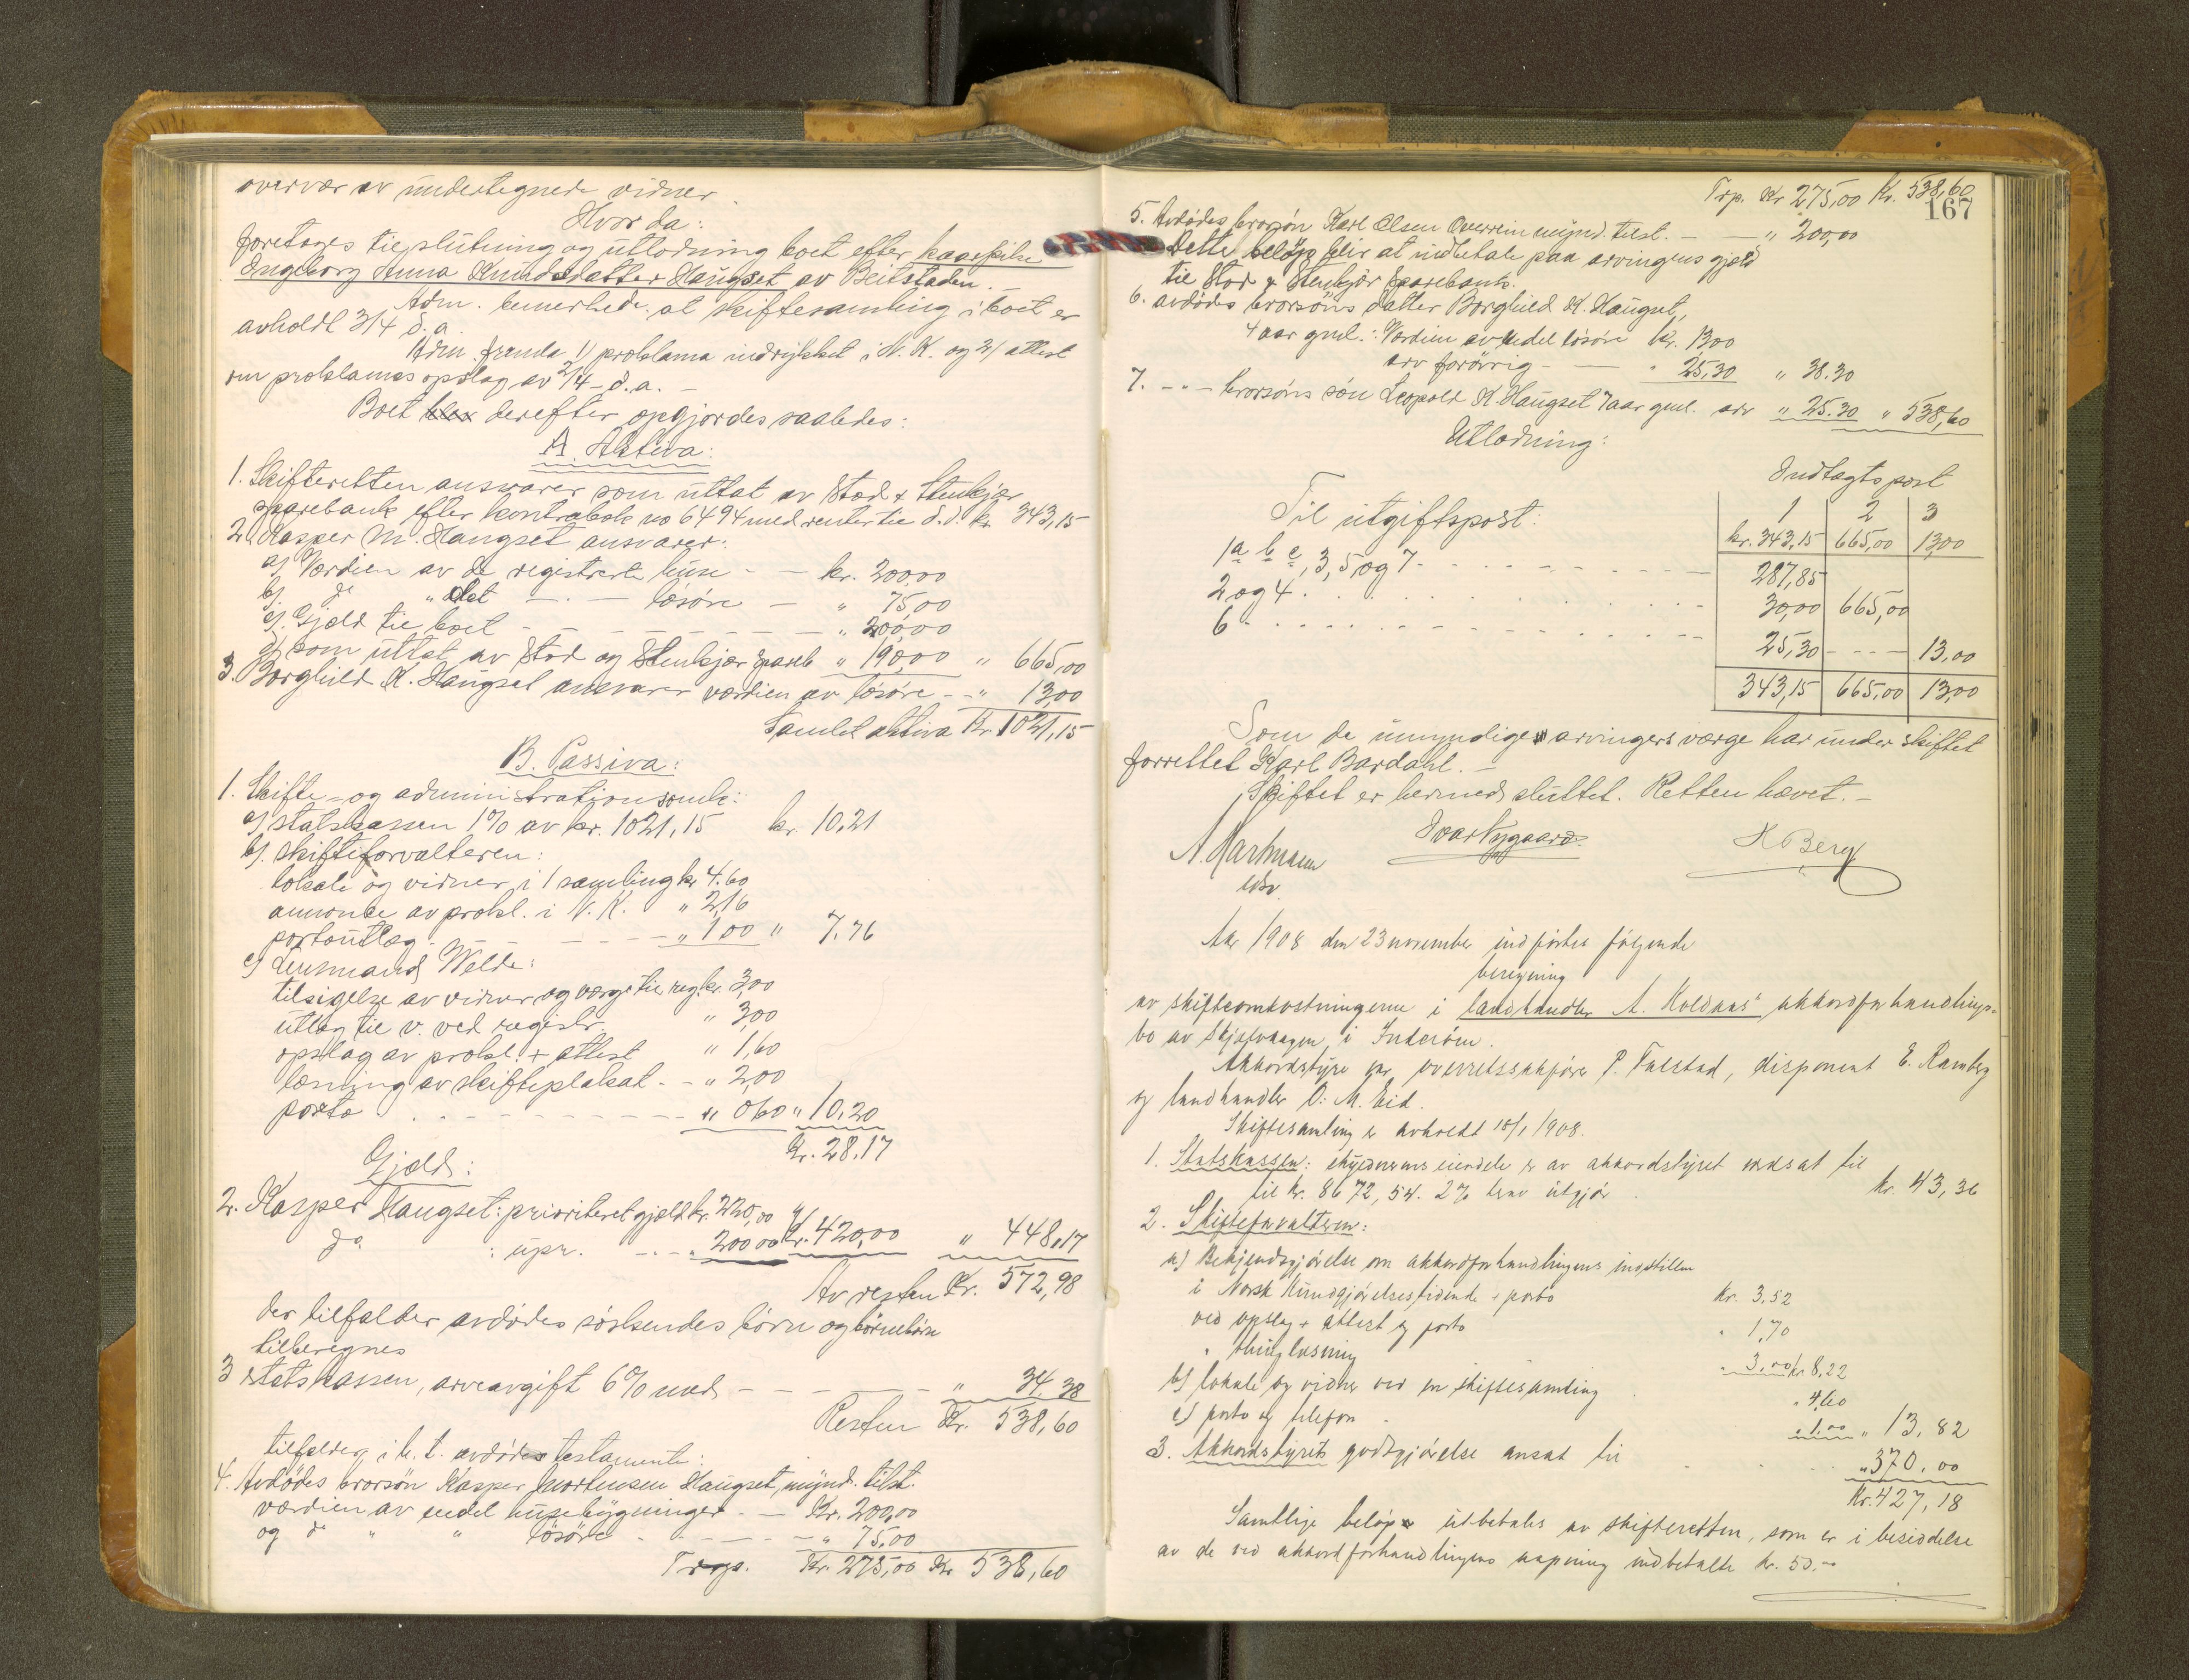 overvær av undertegnede vidner.
Hvorda:
foretoges til slutning og utlodning boet efter kaarkike
Ingeborg Anna Knudsdatter Haugset av Beitstaden.
Adm. bemerkede, at skiftesamling i boet er
avholdt 3/4 d.a.
Adm. fremla 1) proklama indrykket i N. K. og 2/ attest
om proklamas opslag av 2/4 - d. a. -
Boet derefter opgjordes saaledes:
A. Aktiva:
1. Skifteretten ansvarer som uttat av Stod & Stenkjær
sparebank efter kontrabok no 6494 med renter til d.d. kr. 343,15
2. Kasper M. Haugset ansvarer:
a) Værdien av de registrerte huse - - kr. 200,00
b) do " det - . - løsøre - " 75,00
c). Gjæld til boet - - - - - - " 200,00
d) som uttat av Stod og Stenkjær spareb " 190,00 " 665,00
3. Borghild K. Haugset ansvarer værdien av løsøre - - " 13,00
Samlet aktiva Kr. 1021,15
B. Passiva:
1. Skifte- og administrationsomk:
a) statskassen 1% av kr. 1021,15 kr. 10.21
b). skifteforvalteren:
lokale og vidner i 1 samling kr 4.60
annonce av prokl. i N. K. " 2,16
portoutlæg - - - - " 1 00 " 7.76
c) Lensmand Welde:
tilsigelse av vidner og værge til reg. kr. 3,00
utlæg til v. ved registr. " 3,00
opslag av prokl. + attest " 1,60
læsning av skifteplakat - - " 2,00
porto - - - - - - - " 0 60 " 10,20
Kr. 28.17
Gjæld:
2. Kasper Haugset: prioriteret gjæld kr. 220,00
do : upr. - - - " 200 00 kr. 420,00 " 448,17
Av resten Kr. 572,98
der tilfalder avdødes søskendes børn og børnebørn
tilberegnes
3 statskassen, arveavgift 6% med - - - - " 34.38
Resten Kr. 538,60
tilfalder, i h. t. avdødes testamente:
4. Avdødes brorsøn Kasper Mortensen Haugset, mynd. tilst.
værdien av endel husebygninger - - Kr. 200,00
og do " " løsøre - - - - " 75.00
Trsp. Kr. 275,00 Kr 538,60
167
Trp. Kr 275,00 Kr. 538,60
5. Avdødes brorsøn Karl Olsen Overrein mynd. tilst. - - " 200,00
Dette beløp blir at indbetale paa arvingens gjæld
til Stod & Stenkjær Sparebank.
6. avdødes brorsøns datter Borghild K. Haugset,
4 aar gml.: Værdien av endel løsøre kr. 13 00
arv forøvrig - - " 25,30 " 38.30
7. - " - brorsøns søn Leopold K. Haugset 7 aar gml. arv " 25.30 " 538,60
Utlodning:
Indtægtspost
Til utgiftspost: 1 2 3
kr. 343,15 665,00 13,00
1a b c, 3, 5 og 7 - - - - - 287,85
2 og 4. . . . . . 30,00 665,00
6 - - - - - - 25,30 - - - 13,00
343,15 665,00 13,00
Som de umyndige arvingers værge har under skiftet
forrettet Karl Bardahl. -
Skiftet er hermed sluttet. Retten hævet. -
A. Hartmann Ivar Nygaard H Berg
Aar 1908 den 23 november indførtes følgende
beregning
av skifteomkostningerne i landhandler A. Koldaas' akkordforhandlings-
bo av Skjelvaagen i Inderøen.
Akkordstyre var overretssakfører P. Falstad, disponent E. Ramberg
og landhandler O. M. Eid.
Skiftesamling er avholdt 18/1 1908.
1. Statskassen: skyldnerens eiendele er av akkordstyret værdsat til
til kr. 8672,54. 2% herav utgjør kr. 43,36
2. Skifteforvalteren:
a) Bekjendtgjørelse om akkordforhandlingens indstillen
i Norsk Kundgjørelsestidende + porto kr. 3,52
ved opslag + attest og porto " 1,70
" thinglæsning " 3.00 kr 8,22
b) lokale og vidner ved en skiftesamling " 4,60
c) porto og telefon - " 1.00 " 13,82
3. Akkordstyrets godtgjørelse ansat til " 370.00
Kr. 427,18
Samtlige beløp utbetales av skifteretten, som er i besiddelse
av de ved akkordforhandlingens aapning indbetalte kr. 50.-